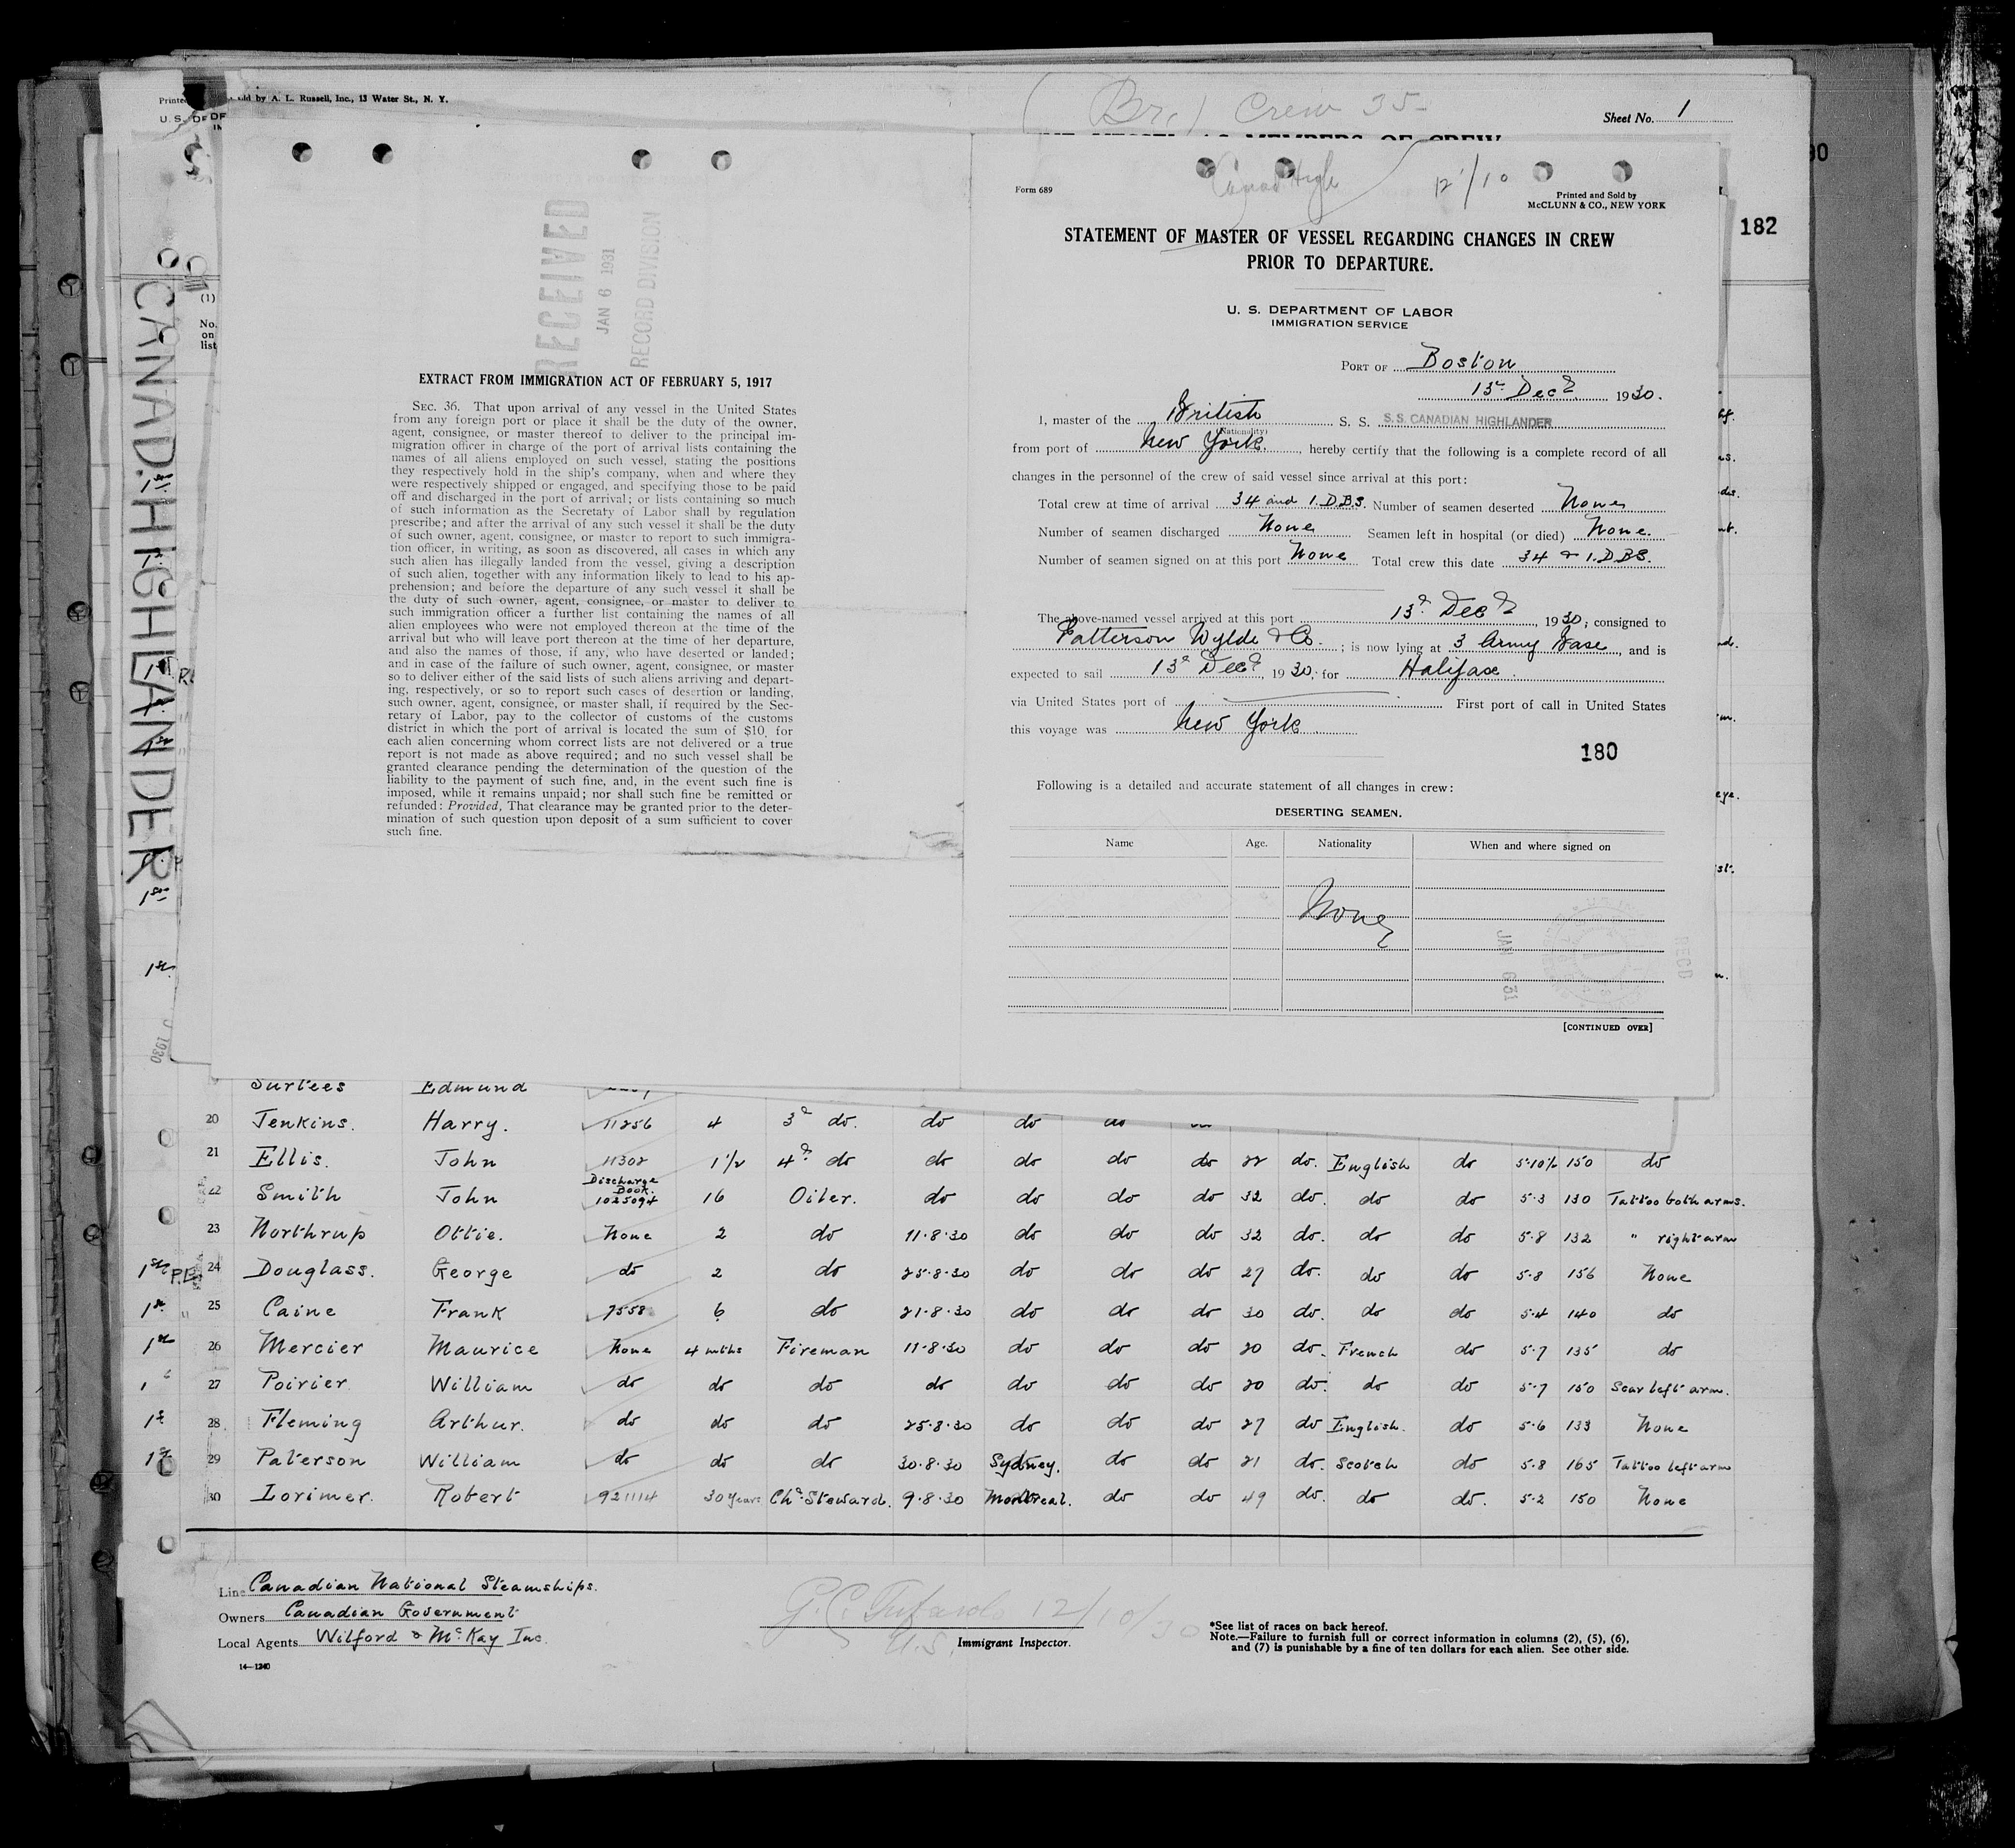 Printed and Sold by A. L. Russell, Inc., 13 Water St., N. Y.
(Br.) Crew 35
Sheet No. 1
182
CANAD. HIGHLANDER
(1)
No.
on
list
RECEIVED
JAN 6 1931
RECORD DIVISION
EXTRACT FROM IMMIGRATION ACT OF FEBRUARY 5, 1917
SEC. 36. That upon arrival of any vessel in the United States
from any foreign port or place it shall be the duty of the owner,
agent, consignee, or master thereof to deliver to the principal im-
migration officer in charge of the port of arrival lists containing the
names of all aliens employed on such vessel, stating the positions
they respectively hold in the ship's company, when and where they
were respectively shipped or engaged, and specifying those to be paid
off and discharged in the port of arrival; or lists containing so much
of such information as the Secretary of Labor shall by regulation
prescribe; and after the arrival of any such vessel it shall be the duty
of such owner, agent, consignee, or master to report to such immigra-
tion officer, in writing, as soon as discovered, all cases in which any
such alien has illegally landed from the vessel, giving a description
of such alien, together with any information likely to lead to his ap-
prehension; and before the departure of any such vessel it shall be
the duty of such owner, agent, consignee, or master to deliver to
such immigration officer a further list containing the names of all
alien employees who were not employed thereon at the time of the
arrival but who will leave port thereon at the time of her departure,
and also the names of those, if any, who have deserted or landed;
and in case of the failure of such owner, agent, consignee, or master
so to deliver either of the said lists of such aliens arriving and depart-
ing, respectively, or so to report such cases of desertion or landing,
such owner, agent, consignee, or master shall, if required by the Sec-
retary of Labor, pay to the collector of customs of the customs
district in which the port of arrival is located the sum of $10. for
each alien concerning whom correct lists are not delivered or a true
report is not made as above required; and no such vessel shall be
granted clearance pending the determination of the question of the
liability to the payment of such fine, and, in the event such fine is
imposed, while it remains unpaid; nor shall such fine be remitted or
refunded: Provided, That clearance may be granted prior to the deter-
mination of such question upon deposit of a sum sufficient to cover
such fine.
Canad High 12/10
Form 689
Printed and Sold by
McCLUNN & CO., NEW YORK
STATEMENT OF MASTER OF VESSEL REGARDING CHANGES IN CREW
PRIOR TO DEPARTURE.
U. S. DEPARTMENT OF LABOR
IMMIGRATION SERVICE
PORT OF Boston
13th Decr 1930.
I, master of the British S. S. S.S. CANADIAN HIGHLANDER
(Nationality)
from port of New York, hereby certify that the following is a complete record of all
changes in the personnel of the crew of said vessel since arrival at this port:
Total crew at time of arrival 34 and 1.D.B.S. Number of seamen deserted None
Number of seamen discharged None Seamen left in hospital (or died) None.
Number of seamen signed on at this port None Total crew this date 34 & 1.D.B.S.
The above-named vessel arrived at this port 13th Decr, 1930; consigned to
Patterson Wylde & Co.; is now lying at 3 Army Base, and is
expected to sail 13th Decr 1930, for Halifax.
via United States port of First port of call in United States
this voyage was New York
180
Following is a detailed and accurate statement of all changes in crew:
DESERTING SEAMEN.
Name Age. Nationality When and where signed on
None
JAN 6 31
RECD
[CONTINUED OVER]
Surtees Edmund
20 Jenkins. Harry. 11256 4 3d do. do do do
21 Ellis. John 11302 1½ 4th do do do do do 22 do. English do 5·10½ 150 do
22 Smith John Discharge Book. 1025094 16 Oiler. do do do do 32 do. do do 5·3 130 Tattoo both arms.
23 Northrup Ottie. None 2 do 11·8·30 do do do 32 do. do do 5·8 132 " right arm
1st P.L. 24 Douglass. George do 2 do 25·8·30 do do do 27 do. do do 5·8 156 None
1st 25 Caine Frank 7558 6 do 21·8·30 do do do 30 do. do do 5·4 140 do
1st 26 Mercier Maurice None 4 mths Fireman 11·8·30 do do do 20 do. French do 5·7 135 do
27 Poirier William do do do do do do do 20 do. do do 5·7 150 Scar left arm.
1st 28 Fleming Arthur. do do do 25·8·30 do do do 27 do English. do 5·6 133 None
1st 29 Paterson William do do do 30·8·30 Sydney. do do 21 do. Scotch do 5·8 165 Tattoo left arm
30 Lorimer. Robert 921114 30 Years Chf. Steward. 9·8·30 Montreal. do do 49 do. do do. 5·2 150 None
Line Canadian National Steamships.
Owners Canadian Government
Local Agents Wilford & McKay Inc.
12/10/30
U.S. Immigrant Inspector.
14—1240
*See list of races on back hereof.
Note.—Failure to furnish full or correct information in columns (2), (5), (6),
and (7) is punishable by a fine of ten dollars for each alien. See other side.